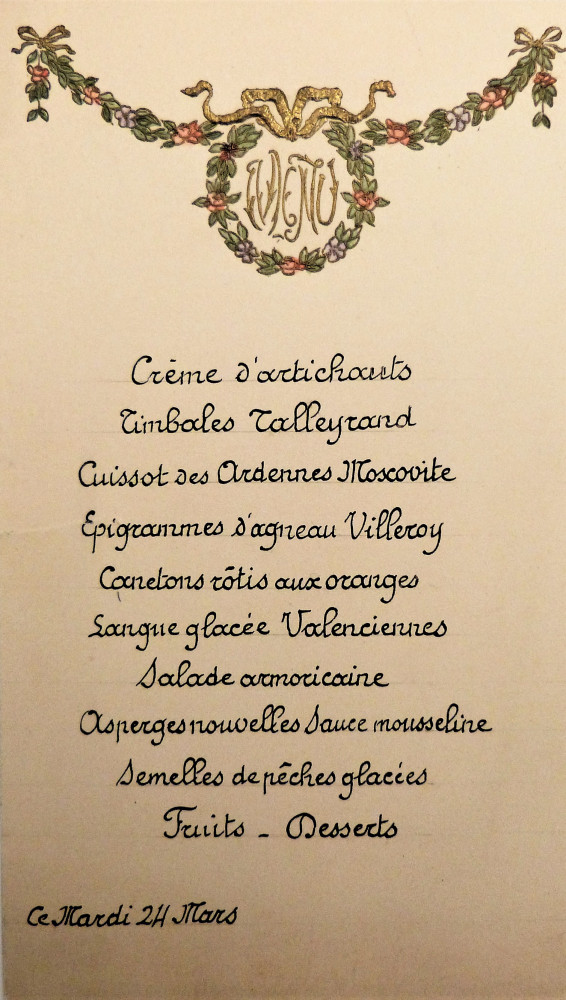 Menu
Crème d'artichauts
Timbales Talleyrand
Cuissot des Ardennes Moscovite
Epigrammes d'agneau Villeroy
Canetons rôtis aux oranges
Langue glacée Valenciennes
Salade armoricaine
Asperges nouvelles Sauce mousseline
Semelles de pêches glacées
Fruits - Desserts
Ce Mardi 24 Mars